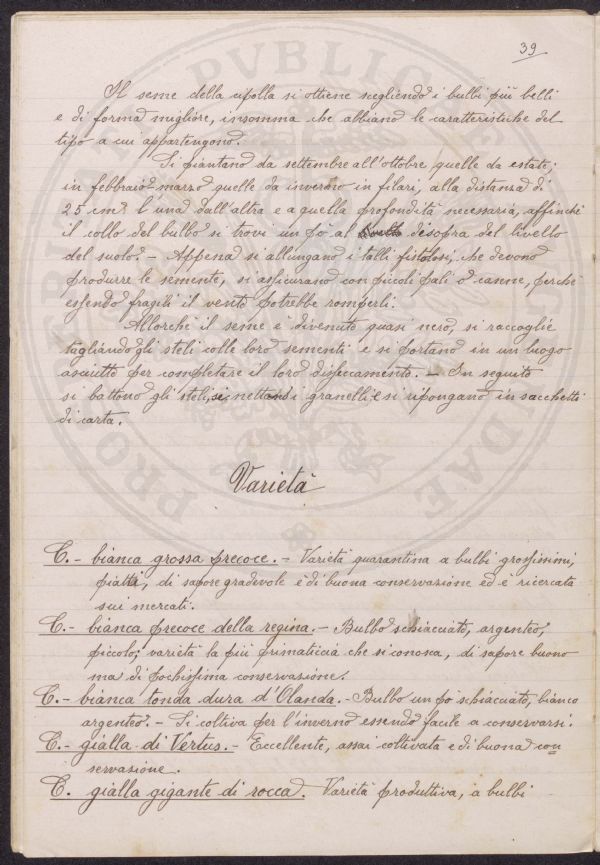 39
Il seme della cipolla si ottiene scegliendo i bulbi più belli
e di forma migliore, insomma che abbiano le caratteristiche del
tipo a cui appartengono.
Si piantano da settembre all'ottobre quelle da estate;
in febbraio-marzo quelle da inverno in filari, alla distanza di
25 cm. l'una dall'altra e a quella profondità necessaria, affinchè
il collo del bulbo si trovi un pò al disopra del livello
del suolo. - Appena si allungano i talli fistolosi, che devono
produrre le semente, si assicurano con piccoli pali o canne, perchè
essendo fragili il vento potrebbe romperli.
Allorchè il seme è divenuto quasi nero, si raccoglie
tagliando gli steli colle loro sementi e si portano in un luogo
asciutto per completare il loro disseccamento. - In seguito
si battono gli steli, si nettano i granelli e si ripongano in sacchetti
di carta.
Varietà
C. - bianca grossa precoce. - Varietà quarantina a bulbi grossissimi,
piatti, di sapore gradevole è di buona conservazione ed è ricercata
sui mercati.
C. - bianca precoce della regina. - Bulbo schiacciato, argenteo,
piccolo; varietà la più primaticcia che si conosca, di sapore buono
ma di pochissima conservazione.
C. - bianca tonda dura d'Olanda. - Bulbo un pò schiacciato, bianco
argenteo. - Si coltiva per l'inverno essendo facile a conservarsi.
C. - gialla di Vertus. - Eccellente, assai coltivata e di buona con
servazione.
C. gialla gigante di rocca. Varietà produttiva, a bulbi
PVBLICAE
PRO